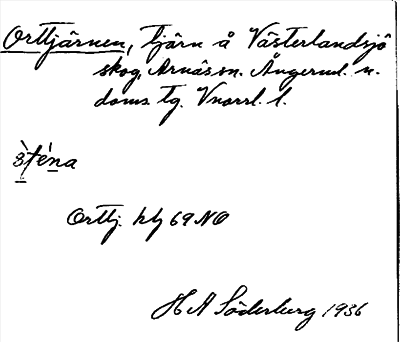 Orttjärnen, tjärn å Västerlandsjö
skog, Arnäs sn. Ångerml. n.
doms. tg. Vnorrl. l.
Orttj. hbl 69 NO
H A Söderberg 1936